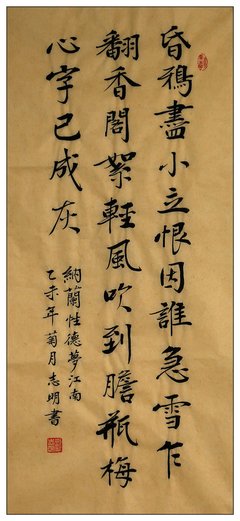 昏鴉盡小立恨因誰急雪乍
翻香閣絮輕風吹到膽瓶梅
心字已成灰
納蘭性德夢江南
乙未年菊月志明書